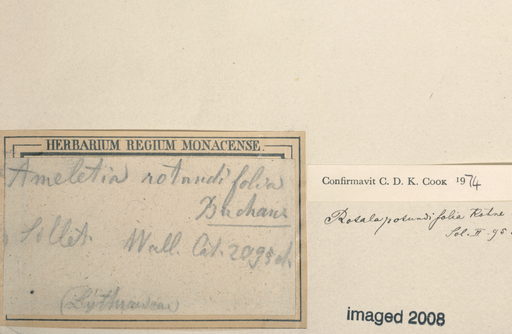 HERBARIUM REGIUM MONACENSE.
Ameletia rotundifolia
Sillet. Wall. Cat. 2095 d.
(Lythraceae)
Confirmavit C. D. K. Cook 1974
Rotala rotundifolia Koehne
imaged 2008